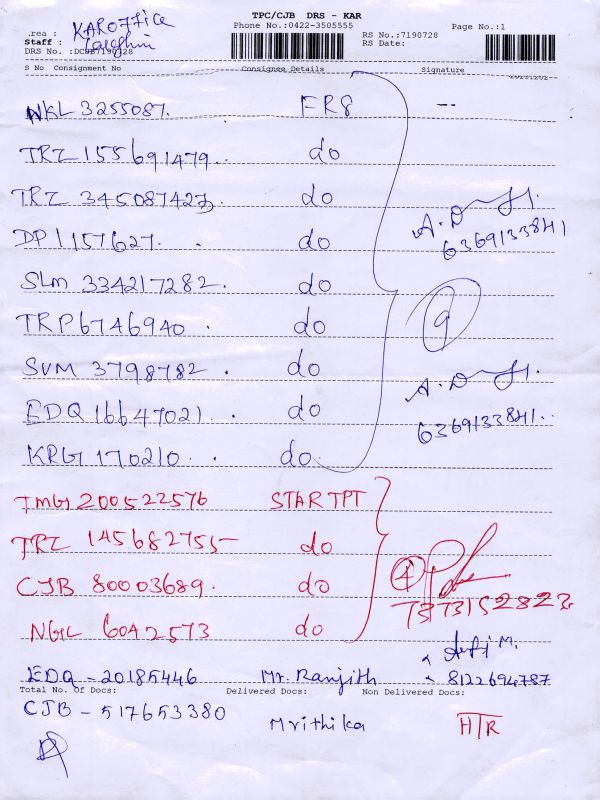 TPC/CJB DRS - KAR
Phone No.:0422-3505555 Page No.:1
.rea : KAROFFICE RS No.:7190728
Staff : RS Date:
DRS No. :DCJB7190728
S No Consignment No Consignee Details Signature
NKL 3255087. FR8 --
TRZ 155691479. do
TRZ 345087427 do A.D
DP1157627. do 6369133841
SLM 334217282. do
TRP6746940. do 9
SVM 3798782. do A.D
EDQ 16647021. do 6369133841..
KRG 170210. do.
TMG 200522576 START PT
TRZ 145682755 do 4
CJB 80003689. do 7373152823
NGL 6042573 do
EDQ - 20185446 Mr. Ranjith 8122694787
Total No. of Docs: Delivered Docs: Non Delivered Docs:
CJB - 517653380 Mrithika HTR